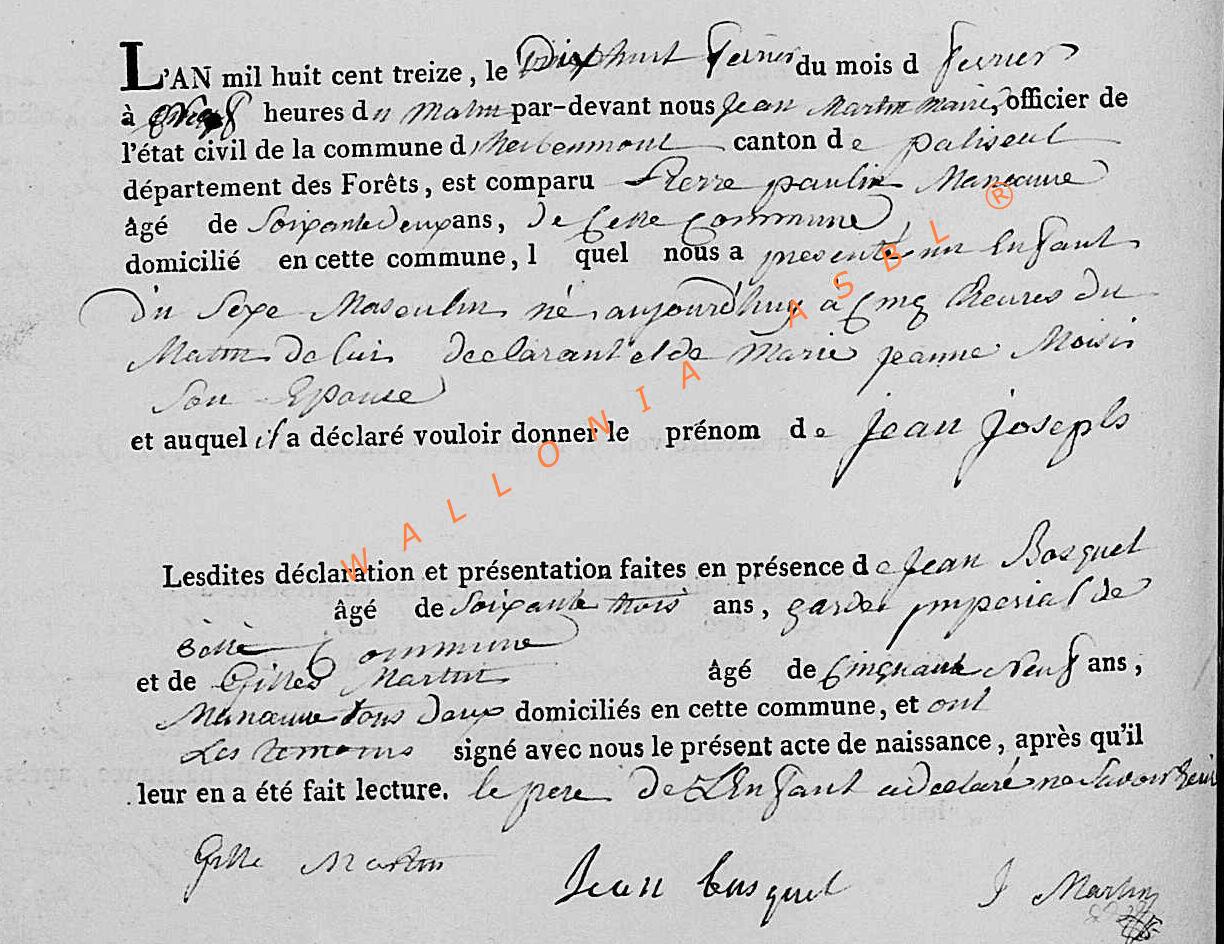 L'AN mil huit cent treize, le Dixhuit fevrier du mois d fevrier
à neuf heures du Matin par-devant nous Jean Martin maire, officier de
l'état civil de la commune d'herbeumont canton de paliseul
département des Forêts, est comparu Pierre paulin Manœuvre
âgé de Soixante deux ans, de Cette Commune
domicilié en cette commune, l quel nous a presenté un Enfant
Du Sexe Masculin né aujourd'huy à Cinq heures du
Matin de lui declarant et de Marie jeanne Moisi
Son Epouse
et auquel il a déclaré vouloir donner le prénom de Jean Joseph
Lesdites déclaration et présentation faites en présence de Jean Bosquet
âgé de Soixante trois ans, garde imperial de
Commune
et de Gilles Martin âgé de Cinquante Neuf ans,
Manœuvre tous deux domiciliés en cette commune, et ont
Les temoins signé avec nous le présent acte de naissance, après qu'il
leur en a été fait lecture. le pere de L'Enfant a declaré ne Savoir
Gille Martin
Jean busquet
J Martin
WALLONIA ASBL ®